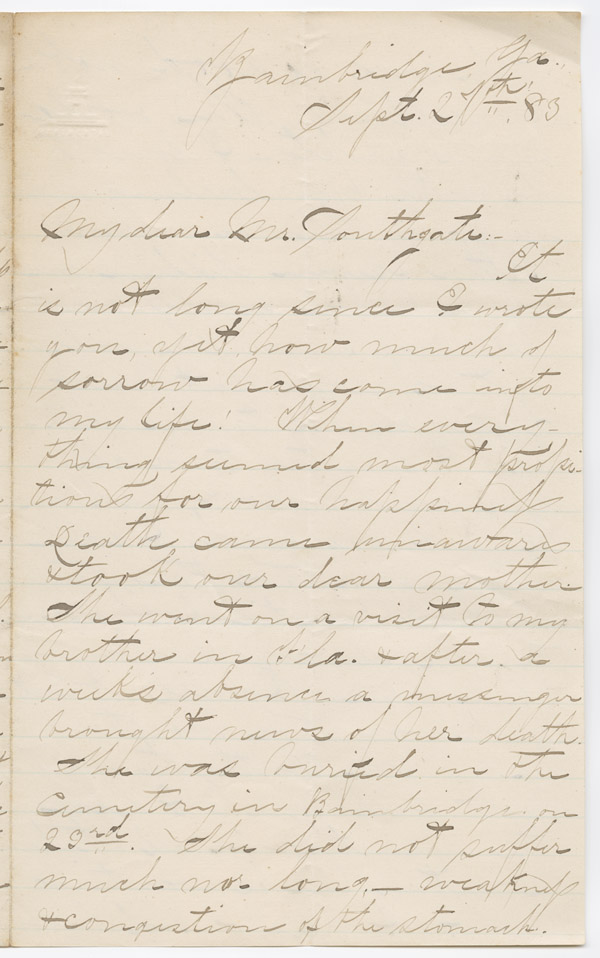 Bainbridge Ga.
Sept. 27th. 83
My dear Mr. Southgate:-
It
is not long since I wrote
you, yet, how much of
sorrow has come into
my life! When every-
thing seemed most propi-
tious for our happiness
Death came unawares
& took our dear mother.
She went on a visit to my
brother in Fla. & after a
week's absence a messenger
brought news of her death.
She was buried in the
Cemetery in Bainbridge on
23rd. She did not suffer
much nor long, — weakness
& congestion of the stomach.